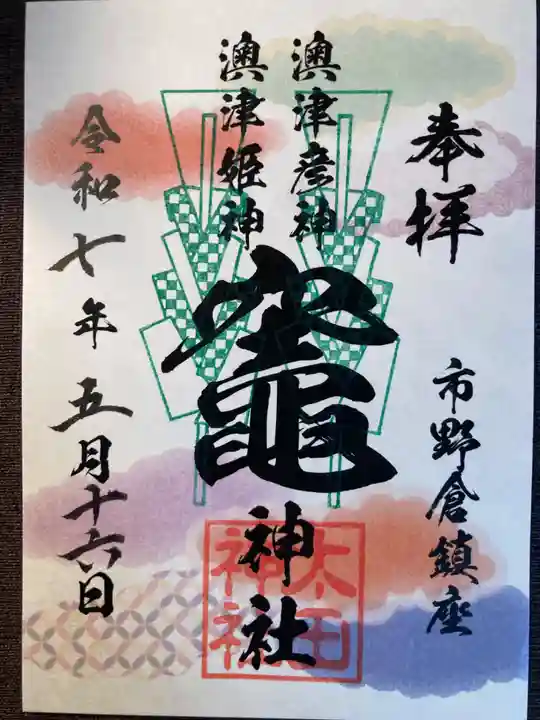 奉拝
市野倉鎮座
澳津彦神
澳津姫神
竈神社
太田神社
令和七年五月十六日